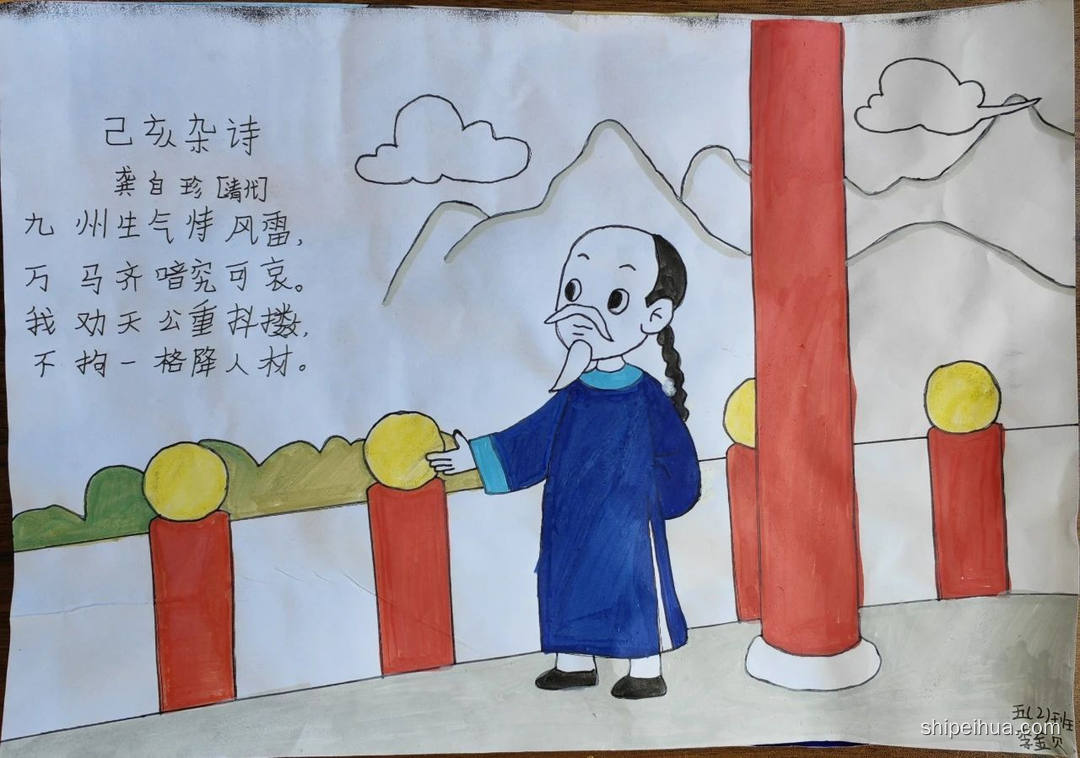 己亥杂诗
龚自珍[清代]
九州生气恃风雷,
万马齐喑究可哀。
我劝天公重抖擞,
不拘一格降人材。
五(2)班
shipeihua.com